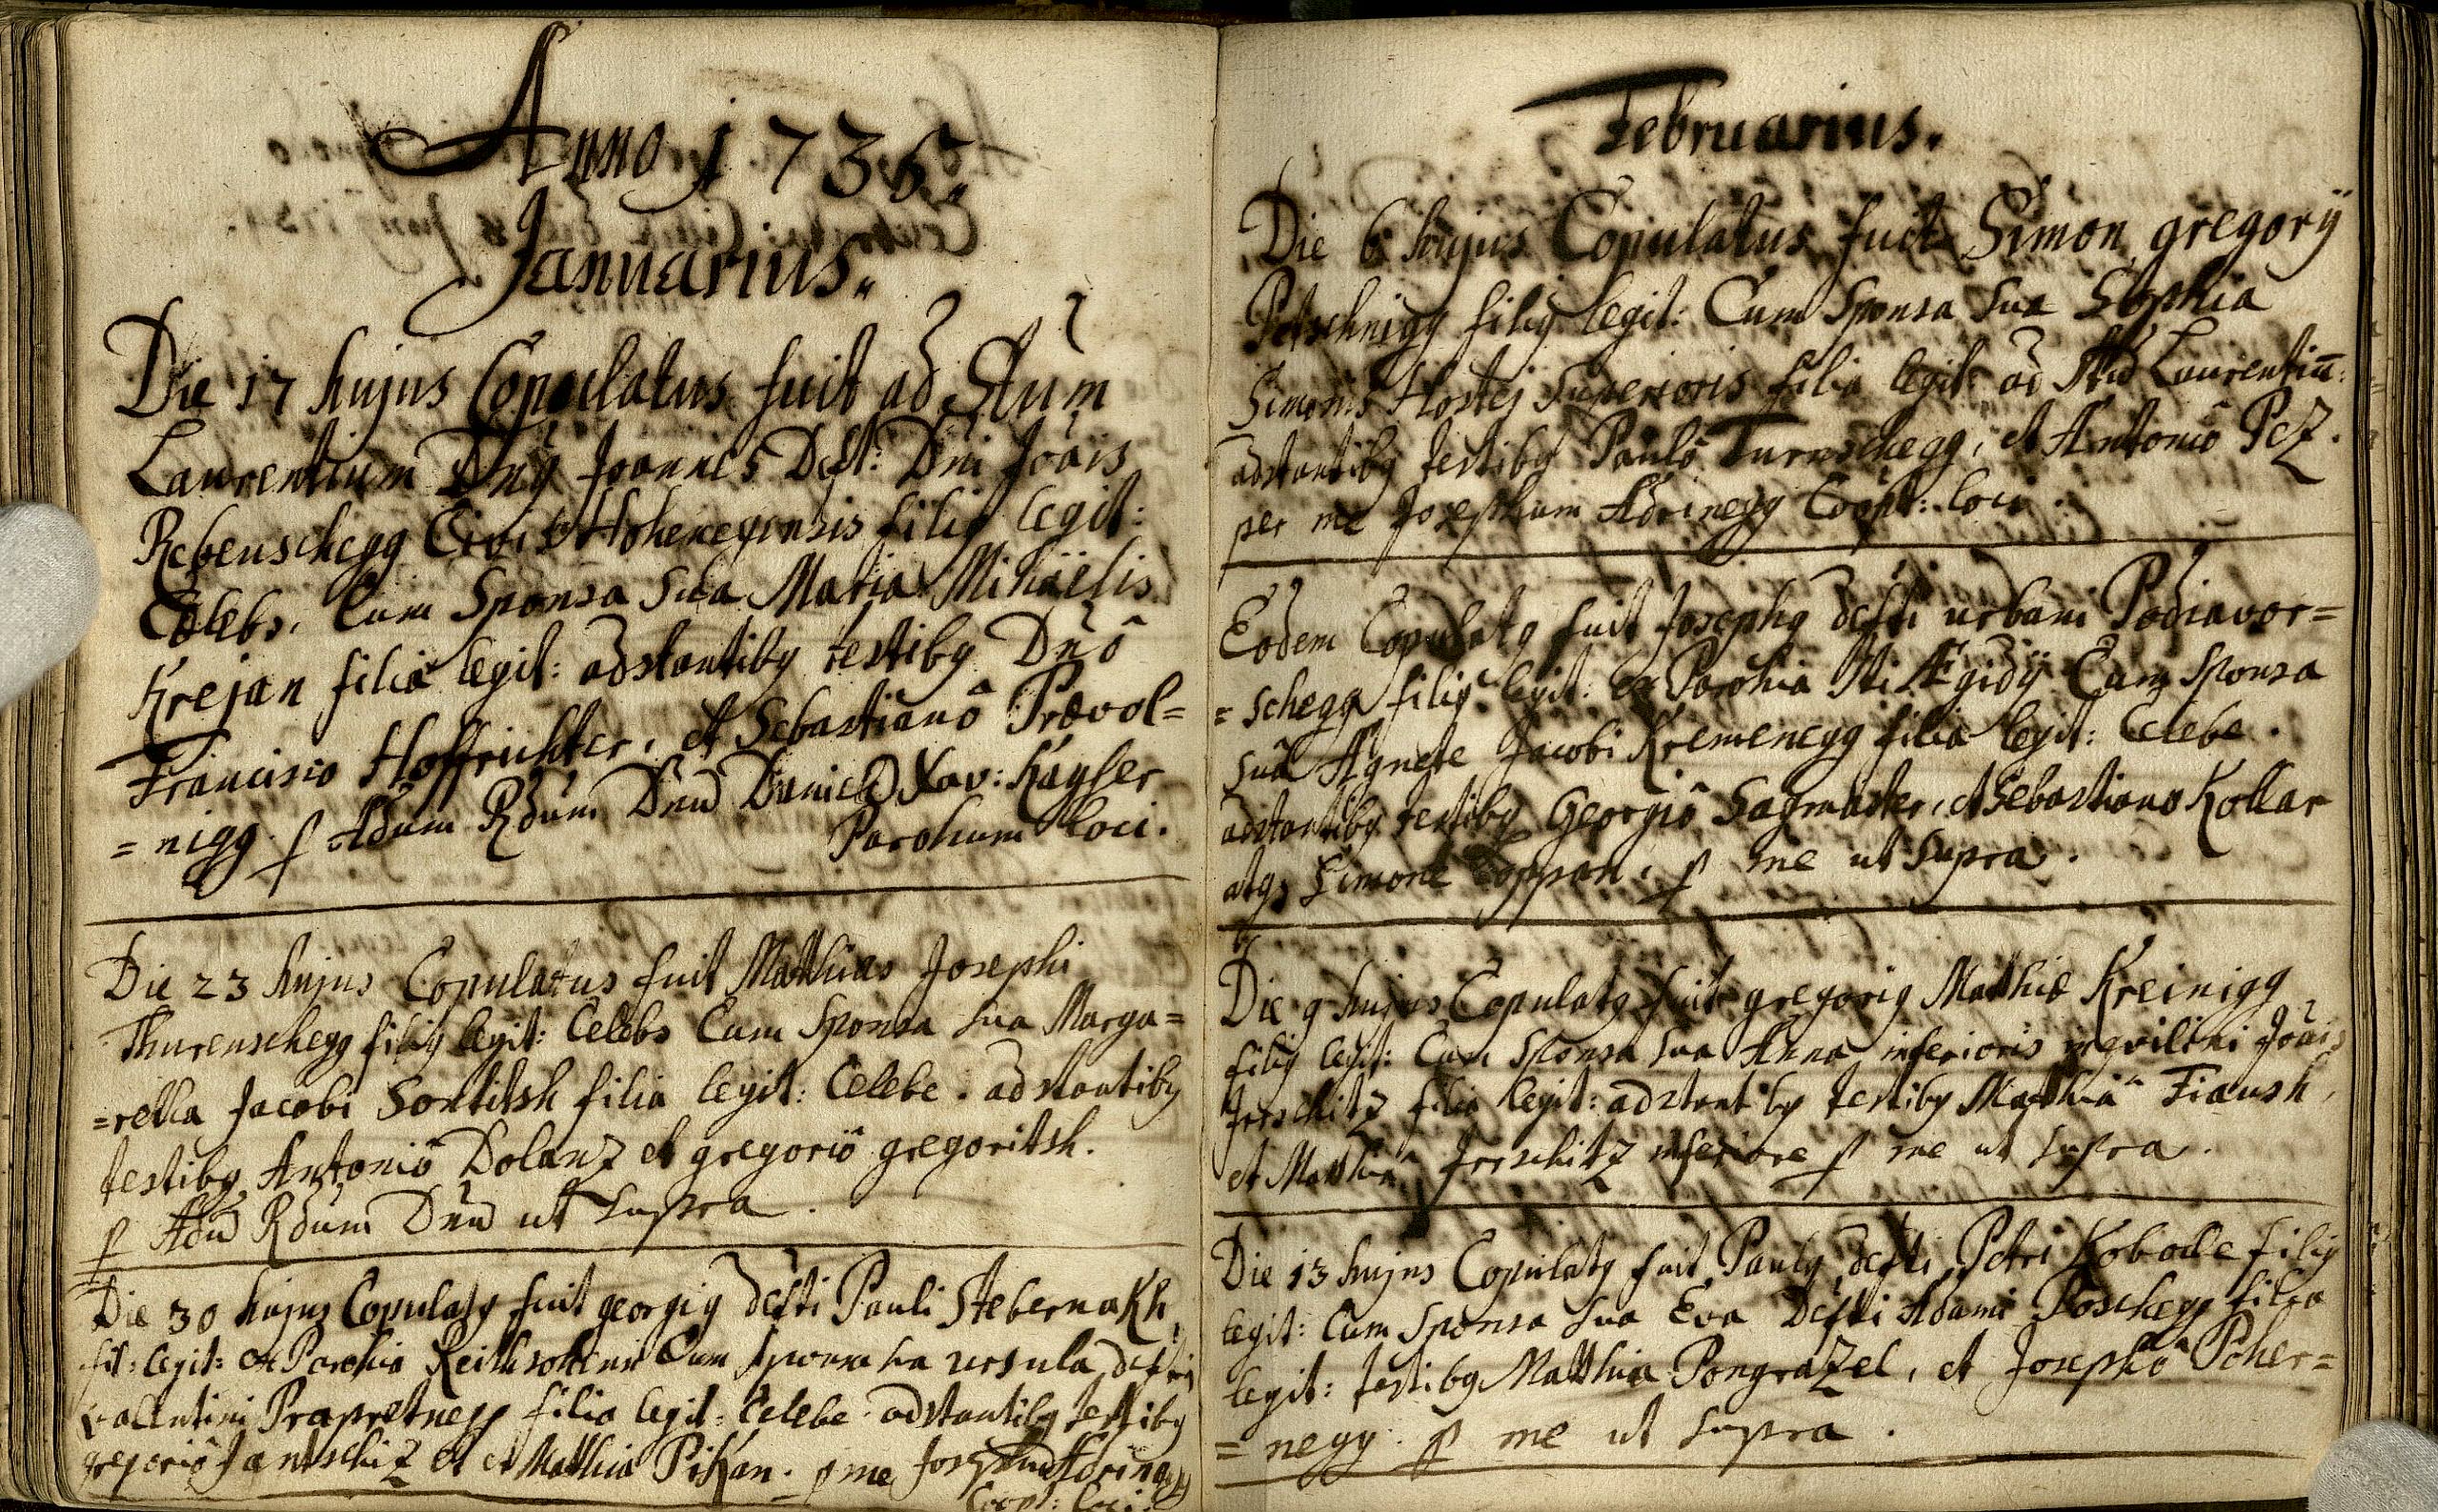 Anno 1735.
Januarius.
Die 17 hujus Copulatus fuit ad Stum
Laurentium Dnq Joannes Deft: Dni Joais
Rebenschegg Civis Hohenegensis filiq legit:
Cœlebs, Cum Sponsa Sua Maria Mihaëlis
Krejan filia legit: adstantibq testibq Dnô
Francisco Hoffrichter, et Sebastianô Prævol=
=nigg. p Adum Rdum Dnũ Daniel Xav: Kayser
Parohum Loci.
Die 23 hujus Copulatus fuit Matthias Josephi
Thurenschegg filiq legit: Celebs Cum Sponsa sua Marga=
=retha Jacobi Sortitsh filia legit: Celebe. adstantibq
testibq Antoniô Dolanz et gregoriô gregoritsh.
p Adũ Rdum Dnũ ut Supra.
Die 30 hujus Copulatq fuit georgiq defti Pauli Stebernakh
fil: legit: ex Parohia Cum Sponsa sua ursula defti
valentini Prapretnegg filia legit: Celebe. adstantibq testibq
gregoriô Jantschiz et et Matthia Pikan. p me
Coopt: Loci.
Februarius.
Die 6 hujus Copulatus fuit Simon gregorÿ
Petschnigg filiq legit: Cum Sponsa sua Sophia
Simonis Hostej Superioris filia legit: ad Stũ Laurentiũ:
adstantibq testibq Paulô Turnschegg, et Antoniô Pez.
per me Josephum Adrinegg Coopt: loci.
Eodem Copulatq fuit Josephq defti urbani Podiavor=
=schegg filiq legit: ex Parohia Sti Ægidÿ Cum Sponsa
suâ Agnete Jacobi Kremenegg filia legit: Celebe.
adstantibq testibq Georgiô Sagmaster, et Sebastiano Kollar
atq Simone Coppan, p me ut Supra.
Die 9 hujus Copulatq fuit gregoriq Matthiæ Kreinigg
filiq legit: Cum Sponsa sua Anna inferioris inqvilini Joais
Jerschitz filia legit: adstantibq testibq Matthiâ Fiaush,
et Matthiâ Jerschitz inferiore p me ut supra.
Die 13 hujus Copulatq fuit Paulq defti Petri Kobolle filiq
legit: Cum Sponsa sua Eva Defti Adami Poschegg filia
legit: testibq Matthia Pongrazel, et Josephô Pcher=
=negg. p me ut supra.